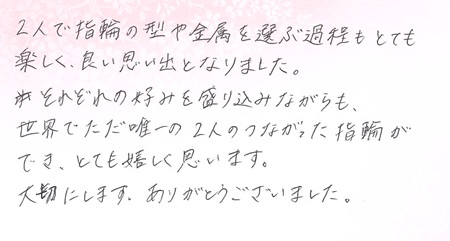 2人で指輪の型や金属を選ぶ過程もとても
楽しく、良い思い出となりました。
それぞれの好みを盛り込みながらも、
世界でただ唯一の2人のつながった指輪が
でき、とても嬉しく思います。
大切にします。ありがとうございました。